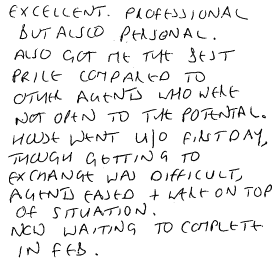 EXCELLENT. PROFESSIONAL
BUT ALSO PERSONAL.
ALSO GOT ME THE BEST
PRICE COMPARED TO
OTHER AGENTS WHO WERE
NOT OPEN TO THE POTENTIAL.
HOUSE WENT U/O FIRST DAY,
THOUGH GETTING TO
EXCHANGE WAS DIFFICULT,
AGENTS EASED + WERE ON TOP
OF SITUATION.
NOW WAITING TO COMPLETE
IN FEB.